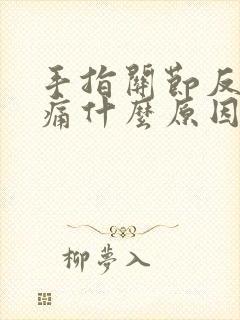 手指關節反
痛什麼原因
柳夢入